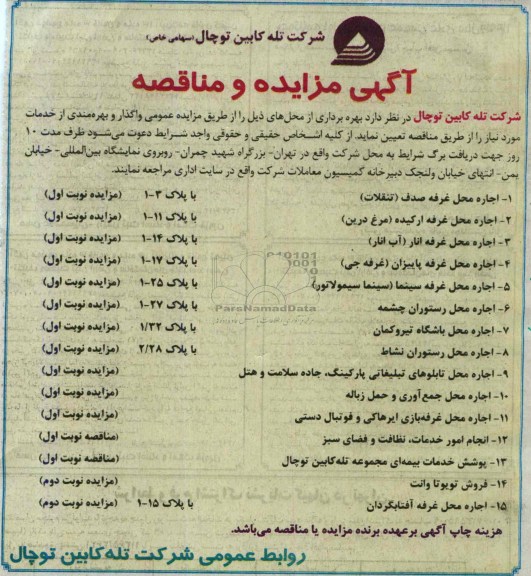 شرکت تله کابین توچال (سهامی خاص)
آگهی مزایده و مناقصه
شرکت تله کابین توچال در نظر دارد بهره برداری از محل‌های ذیل را از طریق مزایده عمومی واگذار و بهره‌مندی از خدمات
مورد نیاز را از طریق مناقصه تعیین نماید. از کلیه اشخاص حقیقی و حقوقی واجد شرایط دعوت می‌شود ظرف مدت ۱۰
روز جهت دریافت برگ شرایط به محل شرکت واقع در تهران- بزرگراه شهید چمران- روبروی نمایشگاه بین‌المللی- خیابان
یمن- انتهای خیابان ولنجک دبیرخانه کمیسیون معاملات شرکت واقع در سایت اداری مراجعه نمایند.
۱- اجاره محل غرفه صدف (تنقلات) با پلاک ۳-۱ (مزایده نوبت اول)
۲- اجاره محل غرفه ارکیده (مرغ درین) با پلاک ۱۱-۱ (مزایده نوبت اول)
۳- اجاره محل غرفه انار (آب انار) با پلاک ۱۴-۱ (مزایده نوبت اول)
۴- اجاره محل غرفه پاییزان (غرفه جی) با پلاک ۱۷-۱ (مزایده نوبت اول)
۵- اجاره محل غرفه سینما (سینما سیمولاتور) با پلاک ۲۵-۱ (مزایده نوبت اول)
۶- اجاره محل رستوران چشمه با پلاک ۲۷-۱ (مزایده نوبت اول)
۷- اجاره محل باشگاه تیروکمان با پلاک ۱/۳۲ (مزایده نوبت اول)
۸- اجاره محل رستوران نشاط با پلاک ۲/۲۸ (مزایده نوبت اول)
۹- اجاره محل تابلوهای تبلیغاتی پارکینگ، جاده سلامت و هتل (مزایده نوبت اول)
۱۰- اجاره محل جمع‌آوری و حمل زباله (مزایده نوبت اول)
۱۱- اجاره محل غرفه‌بازی ایرهاکی و فوتبال دستی (مزایده نوبت اول)
۱۲- انجام امور خدمات، نظافت و فضای سبز (مناقصه نوبت اول)
۱۳- پوشش خدمات بیمه‌ای مجموعه تله‌کابین توچال (مناقصه نوبت اول)
۱۴- فروش تویوتا وانت (مزایده نوبت دوم)
۱۵- اجاره محل غرفه آفتابگردان با پلاک ۱۵-۱ (مزایده نوبت دوم)
هزینه چاپ آگهی برعهده برنده مزایده یا مناقصه می‌باشد.
روابط عمومی شرکت تله کابین توچال
ParsNamadData